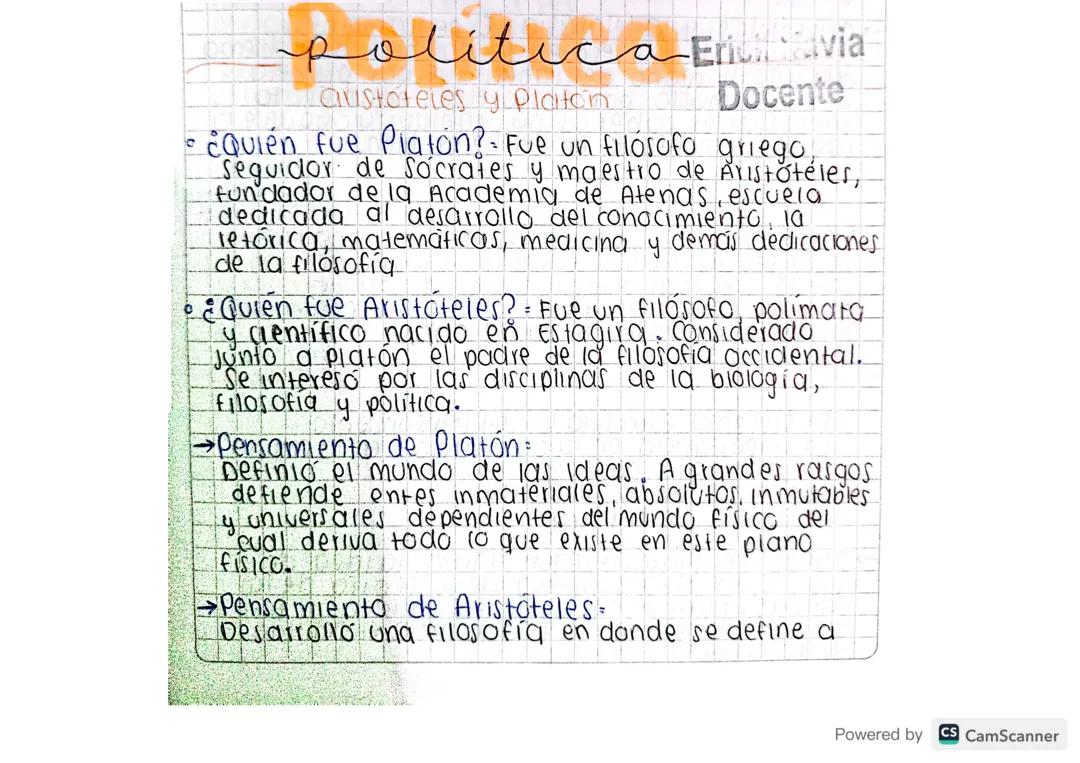 Política
política
Docente
aristóteles y Platón
¿Quién fue Platón?= Fue un filósofo griego,
seguidor de Sócrates y maestro de Aristóteles,
fundador de la Academia de Atenas, escuela
dedicada al desarrollo del conocimiento, la
retórica, matemáticas, medicina y demás dedicaciones
de la filosofía
¿Quién fue Aristóteles?= Fue un filósofo, polímata
y científico nacido en Estagira. Considerado
junto a platón el padre de la filosofía occidental.
Se intereso por las disciplinas de la biología,
filosofía y política.
→Pensamiento de Platón=
Definió el mundo de las ideas. A grandes rasgos
defiende entes inmateriales, absolutos, inmutables
y universales dependientes del mundo físico del
cual deriva todo lo que existe en este plano
físico.
→Pensamiento de Aristóteles=
Desarrolló una filosofía en donde se define a
Powered by CS CamScanner